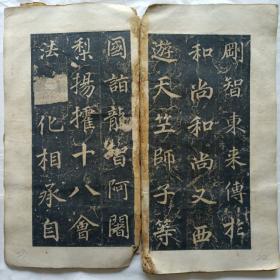 剛智東来傳於
和尚和尚又西
遊天竺師子等
國詣龍智阿闍
梨揚搉十八會
法化相承自